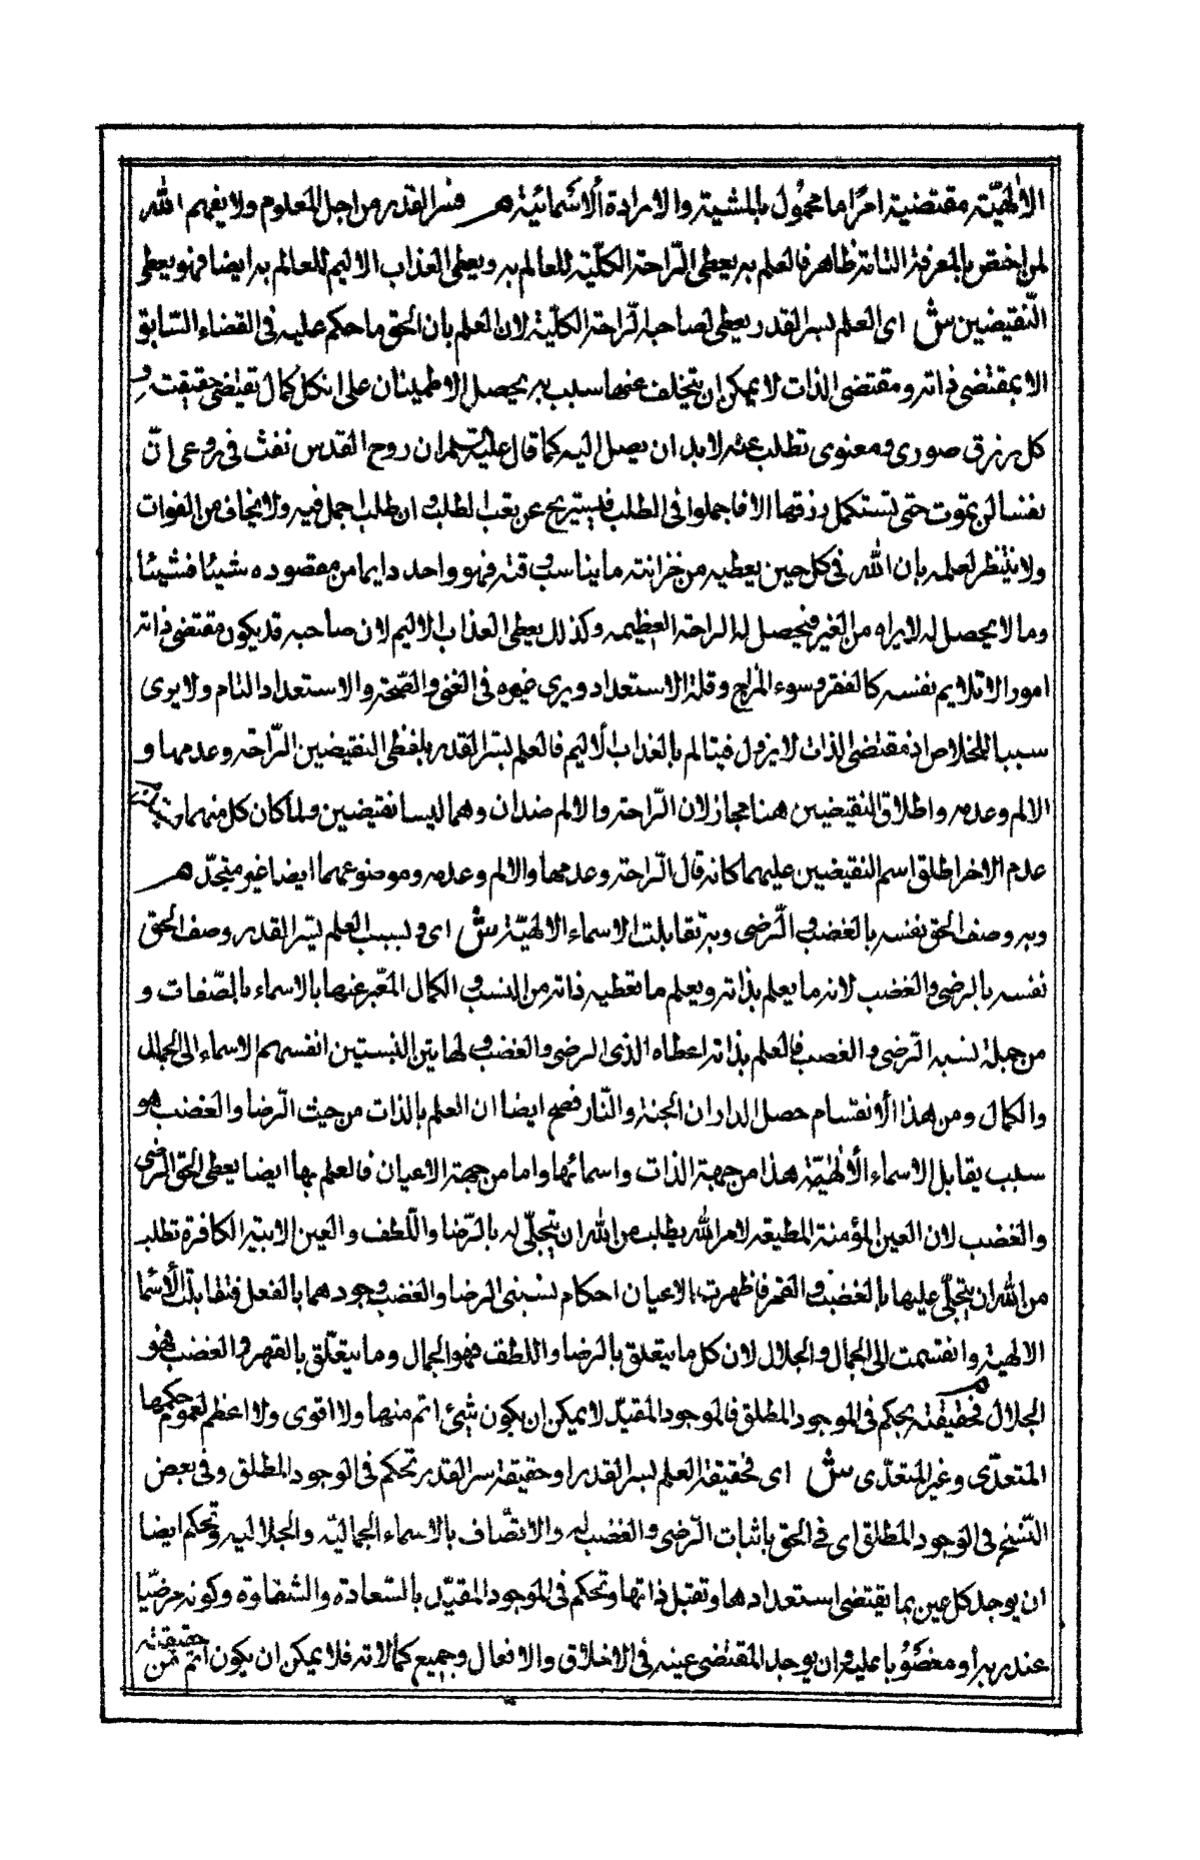 الالٰهيّة مقتضية امرًا ما مجهول بالمشية والارادة الاسمائية م فسر القدر من اجل المعلوم ولا يفهم الله
لمن اختص بالمعرفة التامة ظاهر فالعلم به يعطى الرّاحة الكلّية للعالم به ويعطى العذاب الاليم للعالم به ايضا فهو يعطى
النّقيضين ش اى العلم بسر القدر يعطى لصاحبه الرّاحة الكلّية لان العلم بان الحق ما حكم عليه فى القضاء السّابق
الا بمقتضى ذاته ومقتضى الذات لا يمكن ان يتخلف عنها سبب به يحصل الاطمينان على ان كل كمال تقتضى حقيقته و
كل رزق صورى ومعنوى تطلب عنه لا بد ان يصل اليه كما قال عليه السلم ان روح القدس نفث فى روعى انّ
نفسا لن تموت حتى تستكمل رزقها الا فاجملوا فى الطلب فليستريح عن تعب الطلب وان طلب اجمل فيه ولا يخاف من الفوات
ولا ينتظر لعلمه بان الله فى كل حين يعطيه من خزانته ما يناسب وقته فهو واجد دايما من مقصوده شيئا فشيئا
وما لا يحصل له لا يراه من الغير فيحصل له الراحة العظيمه وكذلك يعطى العذاب الاليم لان صاحبه قد يكون مقتضى ذاته
امورا لا تلايم نفسه كالفقر وسوء المزاج وقلة الاستعداد ويرى غيره فى الغنى والصّحة والاستعداد التام ولا يرى
سببا للخلاص اذ مقتضى الذات لا يزول فيتالم بالعذاب الاليم فالعلم بسرّ القدر يعطى النقيضين الرّاحة وعدمها و
الالم وعدمه واطلاق النقيضين هنا مجاز لان الرّاحة والالم ضدان وهما ليسا نقيضين ولما كان كل منهما
عدم الاخر اطلق اسم النقيضين عليهما كانه قال الرّاحة وعدمها والالم وعدمه وموضوعهما ايضا غير متحدّ م
وبه وصف الحق نفسه بالغضب والرّضى وبه تقابلت الاسماء الالهيّة ش اى وبسبب العلم بسرّ القدر وصف الحق
نفسه بالرضى والغضب لانه ما يعلم بذاته ويعلم ما تعطيه ذاته من النسب والكمال المعّبر عنها بالاسماء بالصّفات و
من جملة نسبه الرّضى والغضب فالعلم بذاته اعطاه الذى الرضى والغضب ولها بين النسبتين انقسهم الاسماء الى الجلال
والكمال ومن هذا الانقسام حصل الداران الجنة والنّار فصح ايضا ان العلم بالذات من حيث الرّضا والغضب هو
سبب يقابل الاسماء الالٰهيّة هذا من جهة الذات واسمائها واما من جهة الاعيان فالعلم بها ايضا يعطى الحق الرضى
والغضب لان العين المؤمنة المطيعه لامر الله يطلب من الله ان يتجلّى له بالرّضا واللّطف والعين الابيّه الكافرة تطلب
من الله ان يتجلّى عليها بالغضب والقهر فاظهرت الاعيان احكام نسبتى الرضا والغضب وجودهما بالفعل فتقابلت الاسّما
الالهية وانقسمت الى الجمال والجلال لان كل ما يتعلق بالرضا واللطف فهو الجمال وما يتعلّق بالقهر والغضب فهو
الجلال م فحقيقته يحكم فى الموجود المطلق فالموجود المقيّد لا يمكن ان يكون شيئ اتم منها ولا اقوى ولا اعظم لعموم حكمها
المتعدّى وغير المتعدّى ش اى فحقيقة العلم بسر القدر او حقيقة سر القدر تحكم فى الوجود المطلق وفى بعض
النّسخ فى الوجود المطلق اى فى الحق باثبات الرّضى والغضب له والاتّصاف بالاسماء الجماليّة والجلاليه وتحكم ايضا
ان يوجد كل عين بما يقتضى استعدادها وتقبل ذاتها وتحكم فى الموجود المقيّد بالسّعادة والشقاوة وكونه مرضيّا
عند ربه او مغضوبا عليه وان يوجد المقتضى عينه فى الاخلاق والافعال وجميع كمالاته فلا يمكن ان يكون اتم من حقيقته